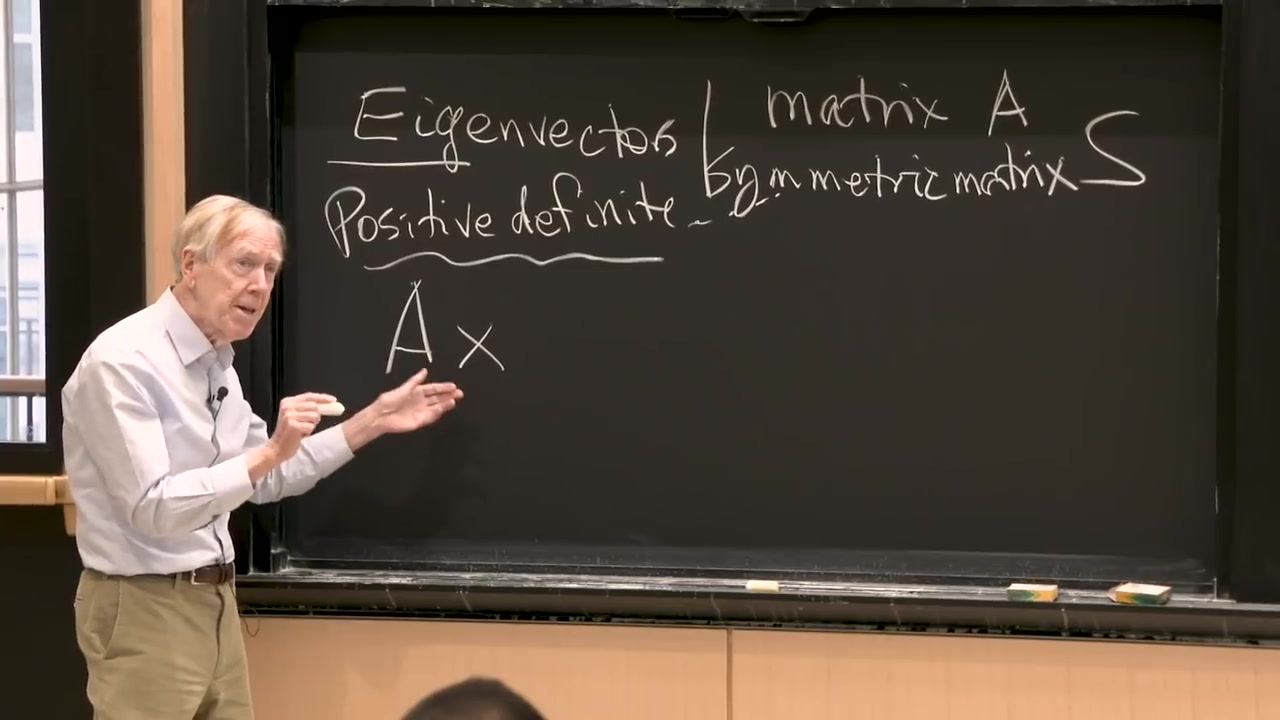 Eigenvectors | matrix A
Positive definite symmetric matrix S
A x